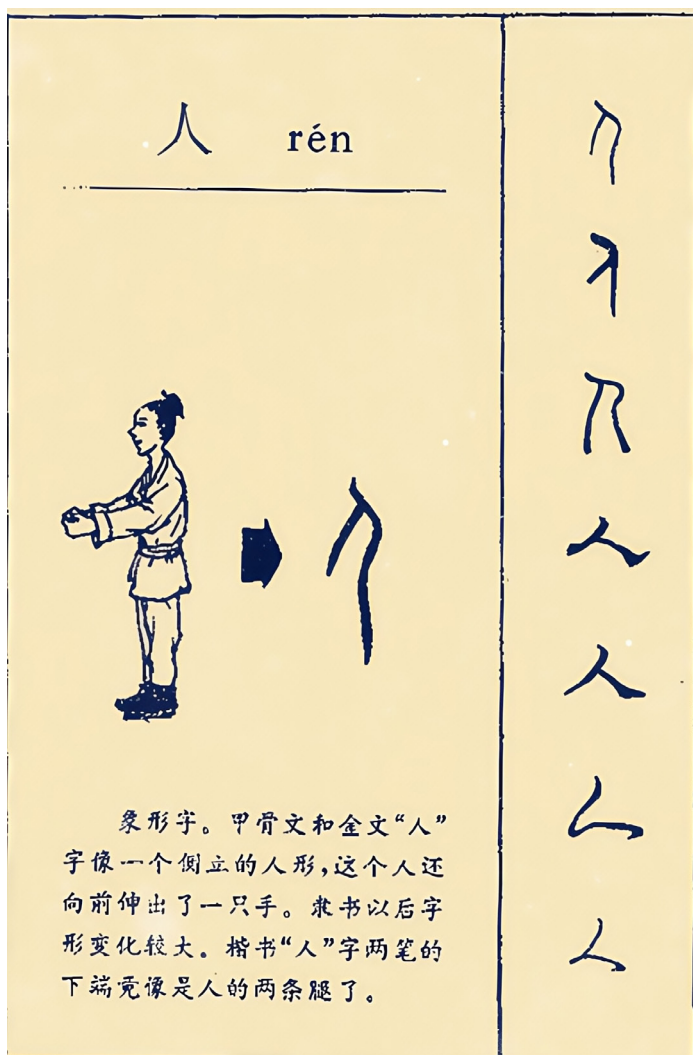 人 rén
象形字。甲骨文和金文“人”
字像一个侧立的人形，这个人还
向前伸出了一只手。隶书以后字
形变化较大。楷书“人”字两笔的
下端竟像是人的两条腿了。
人
人
人
人
人
人
人
人